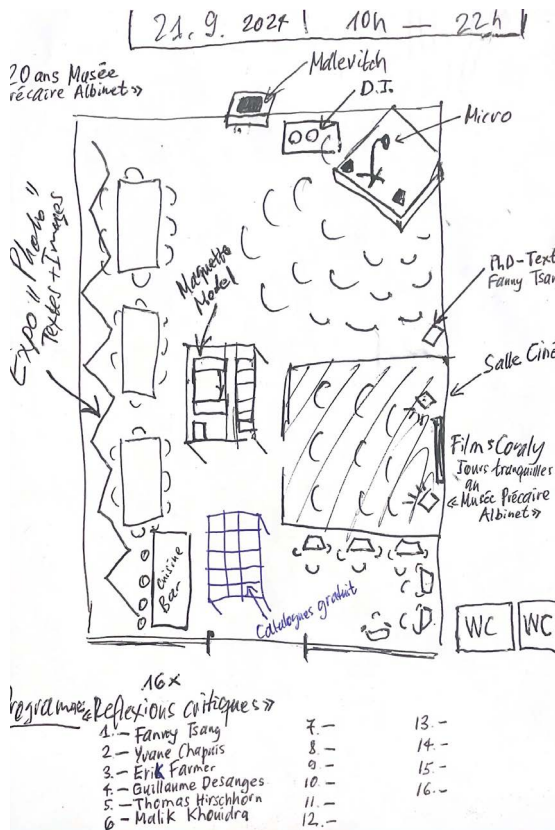 21.9. 2024 | 10h — 22h
20 ans Musée
récaire Albinet »
Malevitch
D.I.
Micro
Expo "Photo"
Textes + Images
Maquette
Model
PhD-Text
Fanny Tsan
Salle Ciné
Film: Coraly
Jours tranquilles
au
«Musée Précaire
Albinet»
Cuisine
Bar
Catalogues gratuit
WC
WC
16x
rogramme «Reflexions critiques»
1.– Fanny Tsang
2.– Yvane Chapuis
3.– Erik Farmer
4.– Guillaume Desanges
5.– Thomas Hirschhorn
6.– Malik Khouidra
7.–
8.–
9.–
10.–
11.–
12.–
13.–
14.–
15.–
16.–